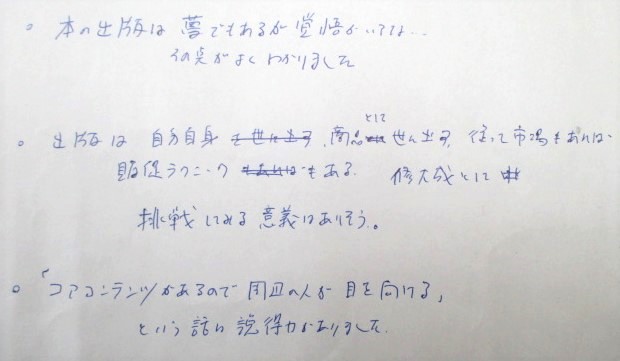 。本の出版は夢でもあるが覚悟がいるな…
その点がよくわかりました
。出版は 自分自身を世に出す、商品として世に出す、従って市場もあれば
販促テクニックもあればもある. 修大成として
挑戦してみる意義はありそう。
。「コアコンテンツがあるので周辺の人が目を向ける,
という話は説得力がありました.